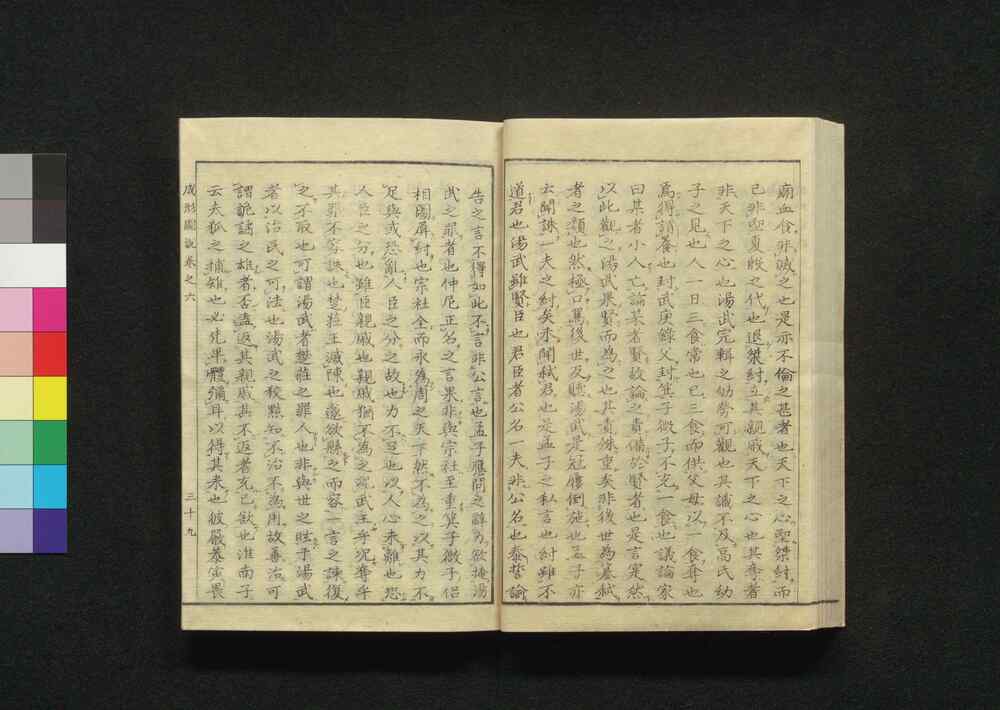 廟血食非滅之也是亦不倫之甚者也天下之心聖桀紂而
已非聖夏殷之代也退桀紂立其親戚天下之心也其奪者
非天下之心也湯武完輯之劬勞可觀也其識不及高氏幼
子之見也人一日三食常也已三食而供父母以一食奪也
爲得謂養也封武庚錄父封箕子微子不充一食也議論家
曰某者小人亡論某者賢故論之責備於賢者也是言寔然
以此觀之湯武果賢而爲之也其責殊重矣非後世爲篡弒
者之類也然極口罵後世反聽湯武是冠履倒施也孟子亦
云聞誅一夫之紂矣未聞弒君也是孟子之私言也紂雖不
道君也湯武雖賢臣也君臣者公名一夫非公名也泰誓諭
告之言不得如此不言非公言也孟子應問之辭乃欲掩湯
武之罪者也仲尼正名之言果非與宗社至重箕子微子侶
相圖屏紂也宗社全而永爲周之天下然不爲之以其力不
足與或恐亂人臣之分之故也力不足也以人心未離也恐
人臣之分也雖臣親戚也親戚猶不爲之說武王乎况奪乎
其罪不容誅也楚莊王滅陳也遂欲縣之而容一言之諫復
之不取也可謂湯武者楚莊之罪人也非與世之賤乎湯武
者以治民之可法也湯武之狡黠知不治不爲用故善治可
謂詭譎之雄者否盍返其親戚其不返者充己欲也淮南子
云夫狐之捕雉也必先卑體彌耳以待其來也彼嚴恭寅畏
成形圖說卷之六
三十九